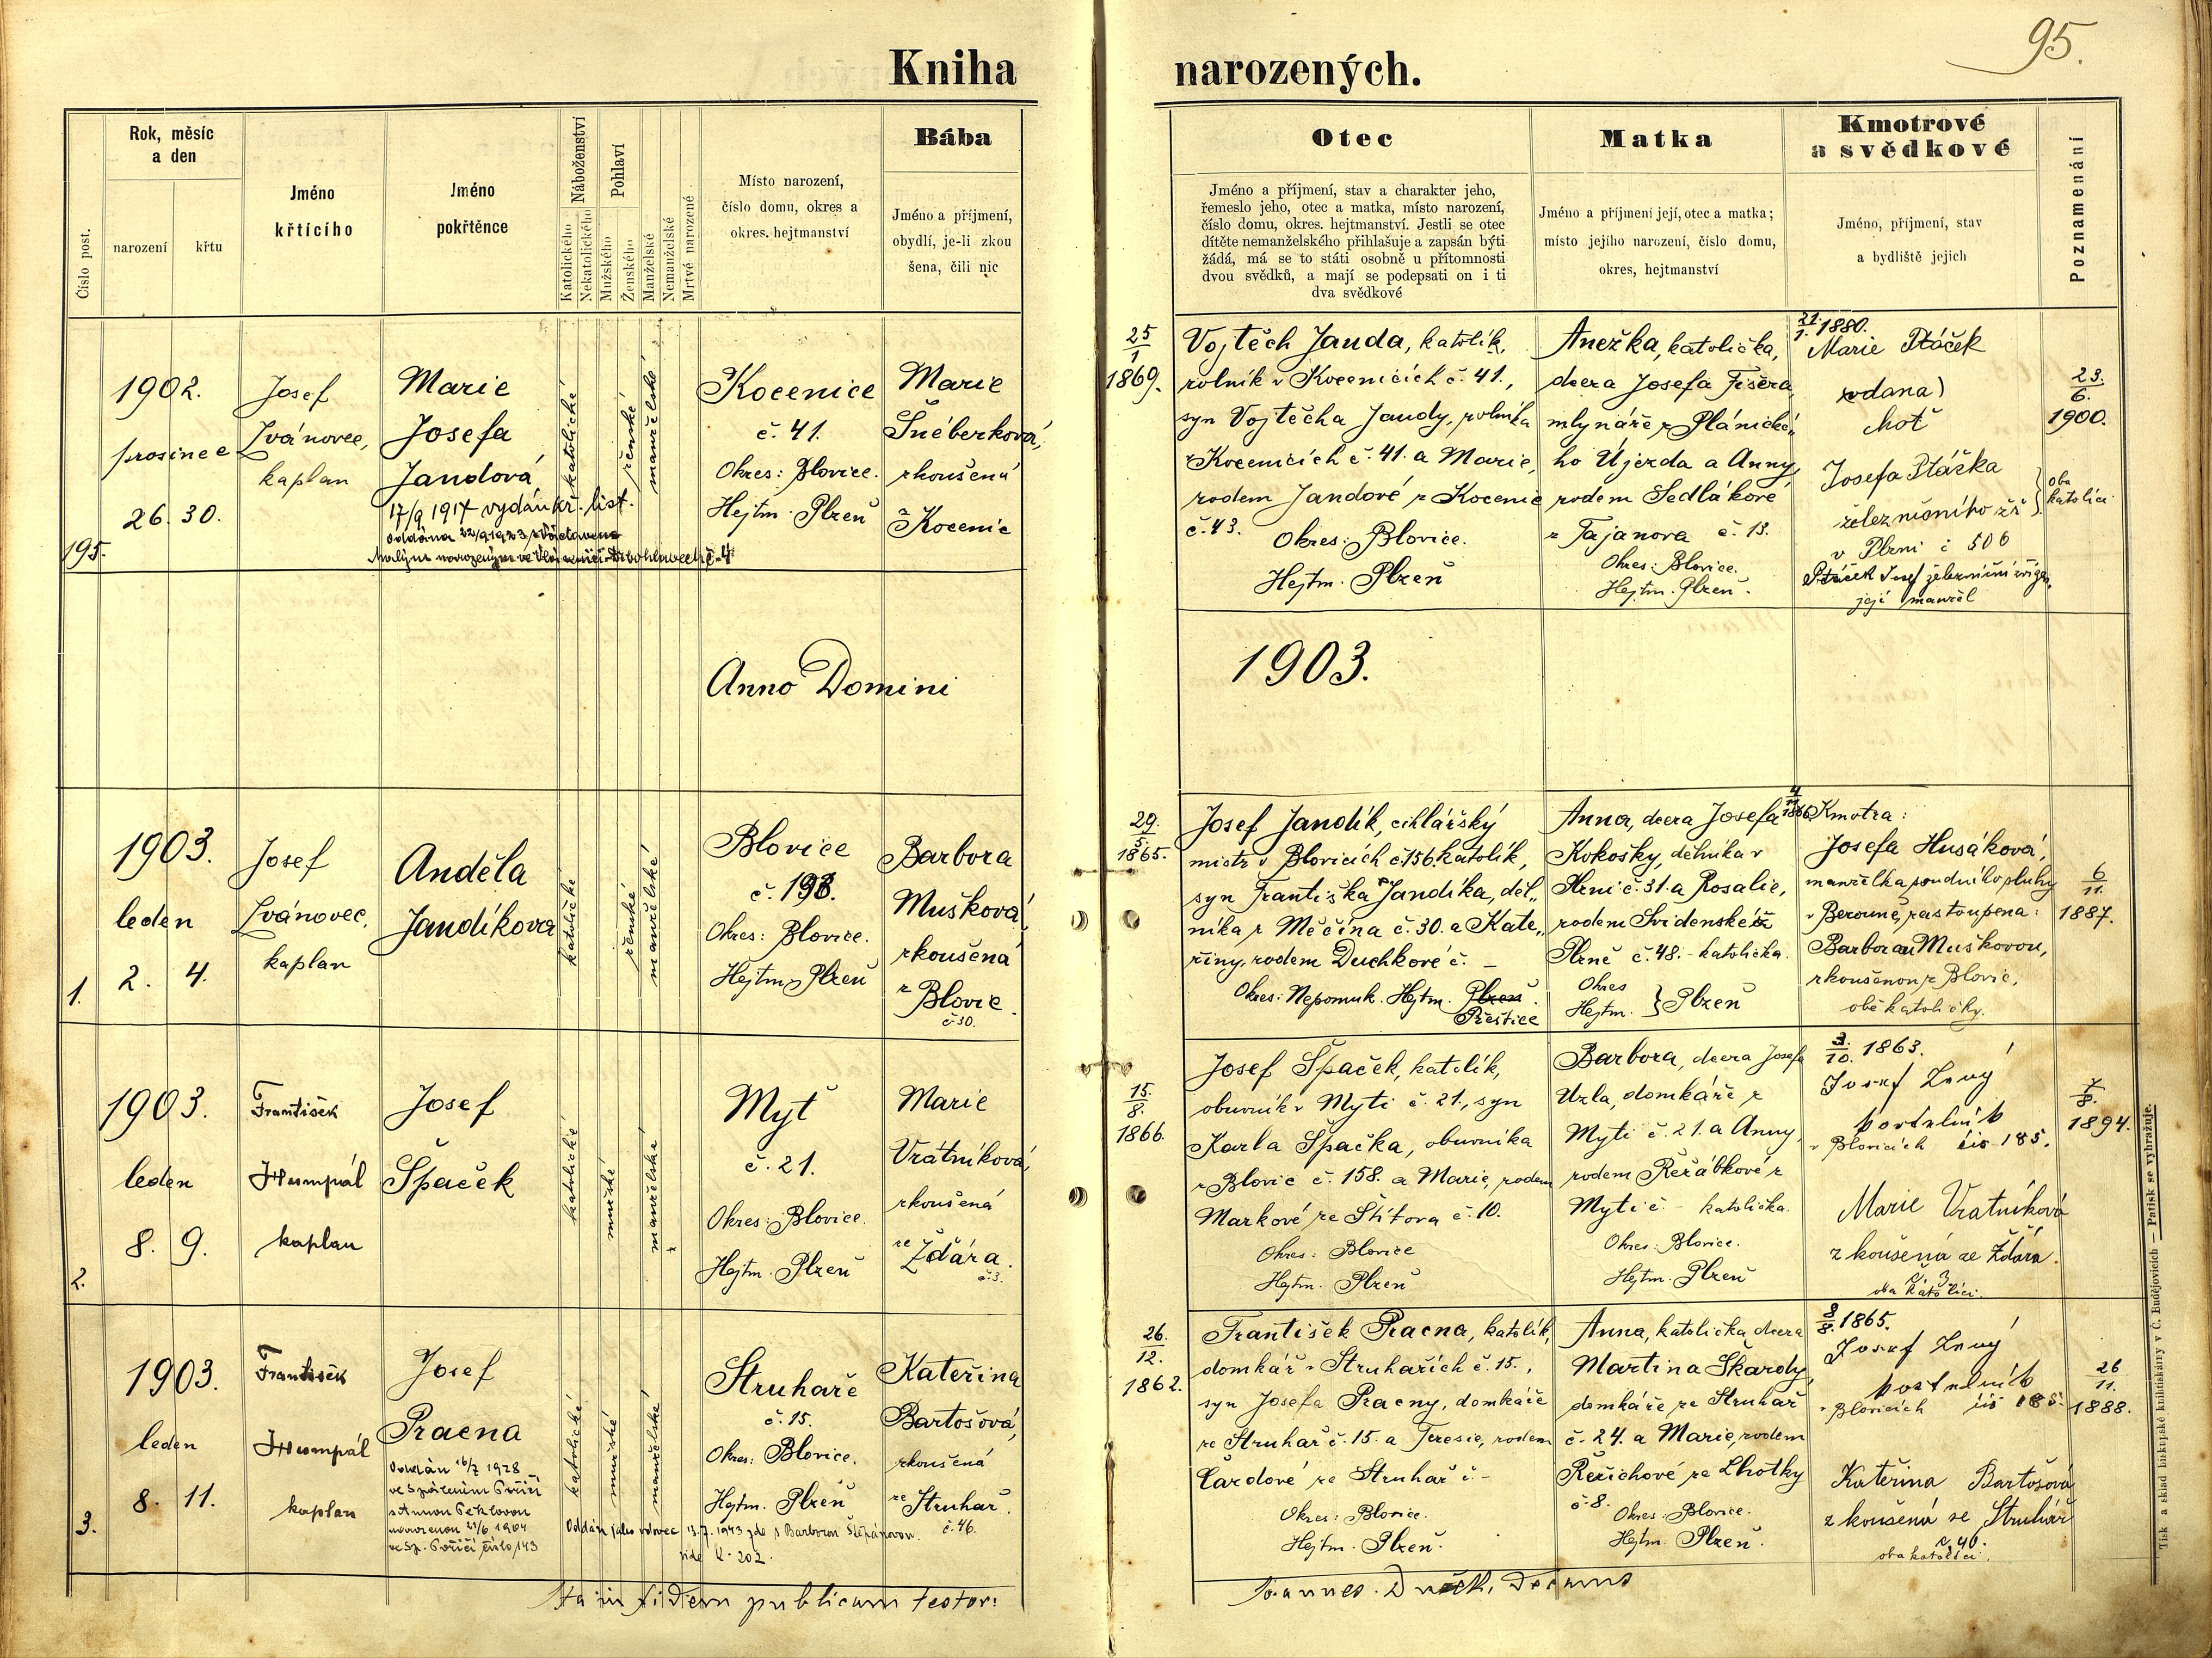 95.
Kniha narozených.
Číslo post.
Rok, měsíc
a den
narození
křtu
Jméno
křtícího
Jméno
pokřtěnce
Náboženství
Katolického
Nekatolického
Pohlaví
Mužského
Ženského
Manželské
Nemanželské
Mrtvě narozené
Místo narození,
číslo domu, okres a
okres. hejtmanství
Bába
Jméno a příjmení,
obydlí, je-li zkou
šena, čili nic
Otec
Jméno a příjmení, stav a charakter jeho,
řemeslo jeho, otec a matka, místo narození,
číslo domu, okres. hejtmanství. Jestli se otec
dítěte nemanželského přihlašuje a zapsán býti
žádá, má se to státi osobně u přítomnosti
dvou svědků, a mají se podepsati on i ti
dva svědkové
Matka
Jméno a příjmení její, otec a matka;
místo jejího narození, číslo domu,
okres, hejtmanství
Kmotrové
a svědkové
Jméno, příjmení, stav
a bydliště jejich
Poznamenání
195.
1902.
prosinec
26. 30.
Josef
Ivánovec,
kaplan
Marie
Josefa
Jandová
17/9 1917 vydán kř. list.
Oddána 22/9 1923
katolické
ženské
manželské
Kocenice
č. 41.
Okres: Blovice.
Hejtm. Plzeň
Marie
Šnéberková,
zkoušená
z Kocenic
25
1
1869.
Vojtěch Janda, katolík,
rolník v Kocenicích č. 41.,
syn Vojtěcha Jandy, rolníka
v Kocenicích č. 41. a Marie,
rodem Jandové z Kocenic
č. 43. Okres: Blovice.
Hejtm. Plzeň
Anežka, katolička,
dcera Josefa Fišera,
mlynáře z Plánické„
ho Újezda a Anny,
rodem Sedlákové
z Tajanova č. 13.
Okres: Blovice.
Hejtm. Plzeň.
21.
1. 1880.
Marie Ptáček
vdana)
choť
Josefa Ptáčka
železničního zř
v Plzni č 506
oba
katolíci
Ptáček Josef železniční zřízen.
její manžel
23.
6.
1900.
Anno Domini 1903.
1.
1903.
leden
2. 4.
Josef
Ivánovec,
kaplan
Anděla
Jandíkova
katolické
ženské
manželské
Blovice
č. 198.
Okres: Blovice.
Hejtm. Plzeň
Barbora
Mušková,
zkoušená
z Blovic.
č 30.
29.
5.
1865.
Josef Jandík, cihlářský
mistr v Blovicích č 156. katolík,
syn Františka Jandíka, děl„
níka z Měčína č. 30. a Kate„
řiny, rodem Duchkové č. –
Okres: Nepomuk. Hejtm. Plzeň.
Přeštice
4
11
1866
Anna, dcera Josefa
Kokošky, dělníka v
Plzni č. 31. a Rosalie,
rodem Svidenské z
Plzně č. 48. – katolička.
Okres
Hejtm. } Plzeň
Kmotra:
Josefa Husáková,
manželka soudního sluhy
v Berouně, zastoupena:
Barborou Muškovou,
zkoušenou z Blovic,
obě katoličky.
6
11.
1887.
2.
1903.
leden
8. 9.
František
Humpál
kaplan
Josef
Špaček
katolické
mužské
manželské
Myť
č. 21.
Okres: Blovice.
Hejtm. Plzeň
Marie
Vrátníková,
zkoušená
ze Ždára.
č. 3.
15.
8.
1866.
Josef Špaček, katolík,
obuvník v Myti č. 21., syn
Karla Špačka, obuvníka
z Blovic č. 158. a Marie, rodem
Markové ze Štítova č. 10.
Okres: Blovice
Hejtm. Plzeň
Barbora, dcera Josefa
Uzla, domkáře z
Myti č. 21. a Anny,
rodem Řeřábkové z
Myti č. – katolička.
Okres: Blovice.
Hejtm. Plzeň
3.
10. 1863.
Josef Levý
kostelník
v Blovicích čís 185.
Marie Vratníková
zkoušená ze Ždára
č. 3
oba katolíci.
7
8.
1894.
3.
1903.
leden
8. 11.
František
Humpál
kaplan
Josef
Pracna
Oddán 16/7 1928
ve Spáleném Poříčí
s Annou Peklovou
narozenou 21/6 1904
ve Sp. Poříčí číslo 143
katolické
mužské
manželské
Oddán jako vdovec 13.7. 1943 zde s Barborou Štěpánovou.
vide 202.
Struhaře
č. 15.
Okres: Blovice.
Hejtm. Plzeň
Kateřina
Bartošová,
zkoušená
ze Struhař.
č. 46.
26.
12.
1862.
František Pracna, katolík,
domkář v Struhařích č. 15.,
syn Josefa Pracny, domkáře
ze Struhař č. 15. a Terezie, rodem
Čardové ze Struhař č. –
Okres: Blovice.
Hejtm. Plzeň.
Anna, katolička, dcera
Martina Škardy,
domkáře ze Struhař
č. 24. a Marie, rodem
Řeřichové ze Lhotky
č 8. Okres: Blovice.
Hejtm. Plzeň.
8
8. 1865.
Josef Levý
kostelník
v Blovicích čís 185.
Kateřina Bartošová
zkoušená ze Struhář
oba katolíci.
26
11.
1888.
Ita in fidem publicam testor:
Joannes Decanus
Tisk a sklad biskupské knihtiskárny v Č. Budějovicích — Patisk se vyhražuje.